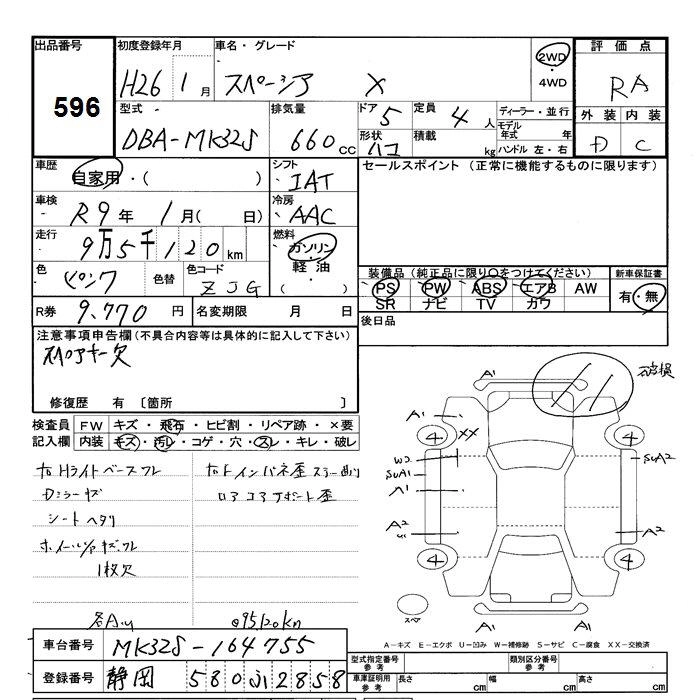 出品番号 初度登録年月 車名・グレード 評価点
596
H26 1月 スペーシア X 2WD RA
・4WD
型式 排気量 ドア 定員 ディーラー・並行 外装 内装
DBA-MK32S 660cc 5 4人 モデル年式 年 D C
形状 積載 ハンドル 左・右
ハコ kg
車歴 シフト セールスポイント (正常に機能するものに限ります)
自家用・( ) IAT
車検 冷房
R9年 1月( 日) AAC
走行 燃料
9万5千120km ガソリン・軽油
色 色替 色コード ( )
ピンク ZJG
装備品(純正品に限り○をつけてください) 新車保証書
PS PW ABS エアB AW 有・無
SR ナビ TV カワ
R券 9,770円 名変期限 月 日 後日品
注意事項申告欄(不具合内容等は具体的に記入して下さい)
スペアキー欠
修復歴 有 〔箇所 〕
検査員 FW キズ・飛石・ヒビ割・リペア跡・×要
記入欄 内装 キズ・汚レ・コゲ・穴・スレ・キレ・破レ
シートヘタリ
1枚欠
@95120km
破損
A1 A1
XX
4 4
W2 SUA2
SUA1
A1
A2 A2
4 4
スペア
A1 A1
A-キズ E-エクボ U-凹み W-補修跡 S-サビ C-腐食 XX-交換済
車台番号 MK32S-164755
型式指定番号 参考 類別区分番号 参考
登録番号 静岡 580ふ2858
車庫証明用 参考 長さ cm 幅 cm 高さ cm